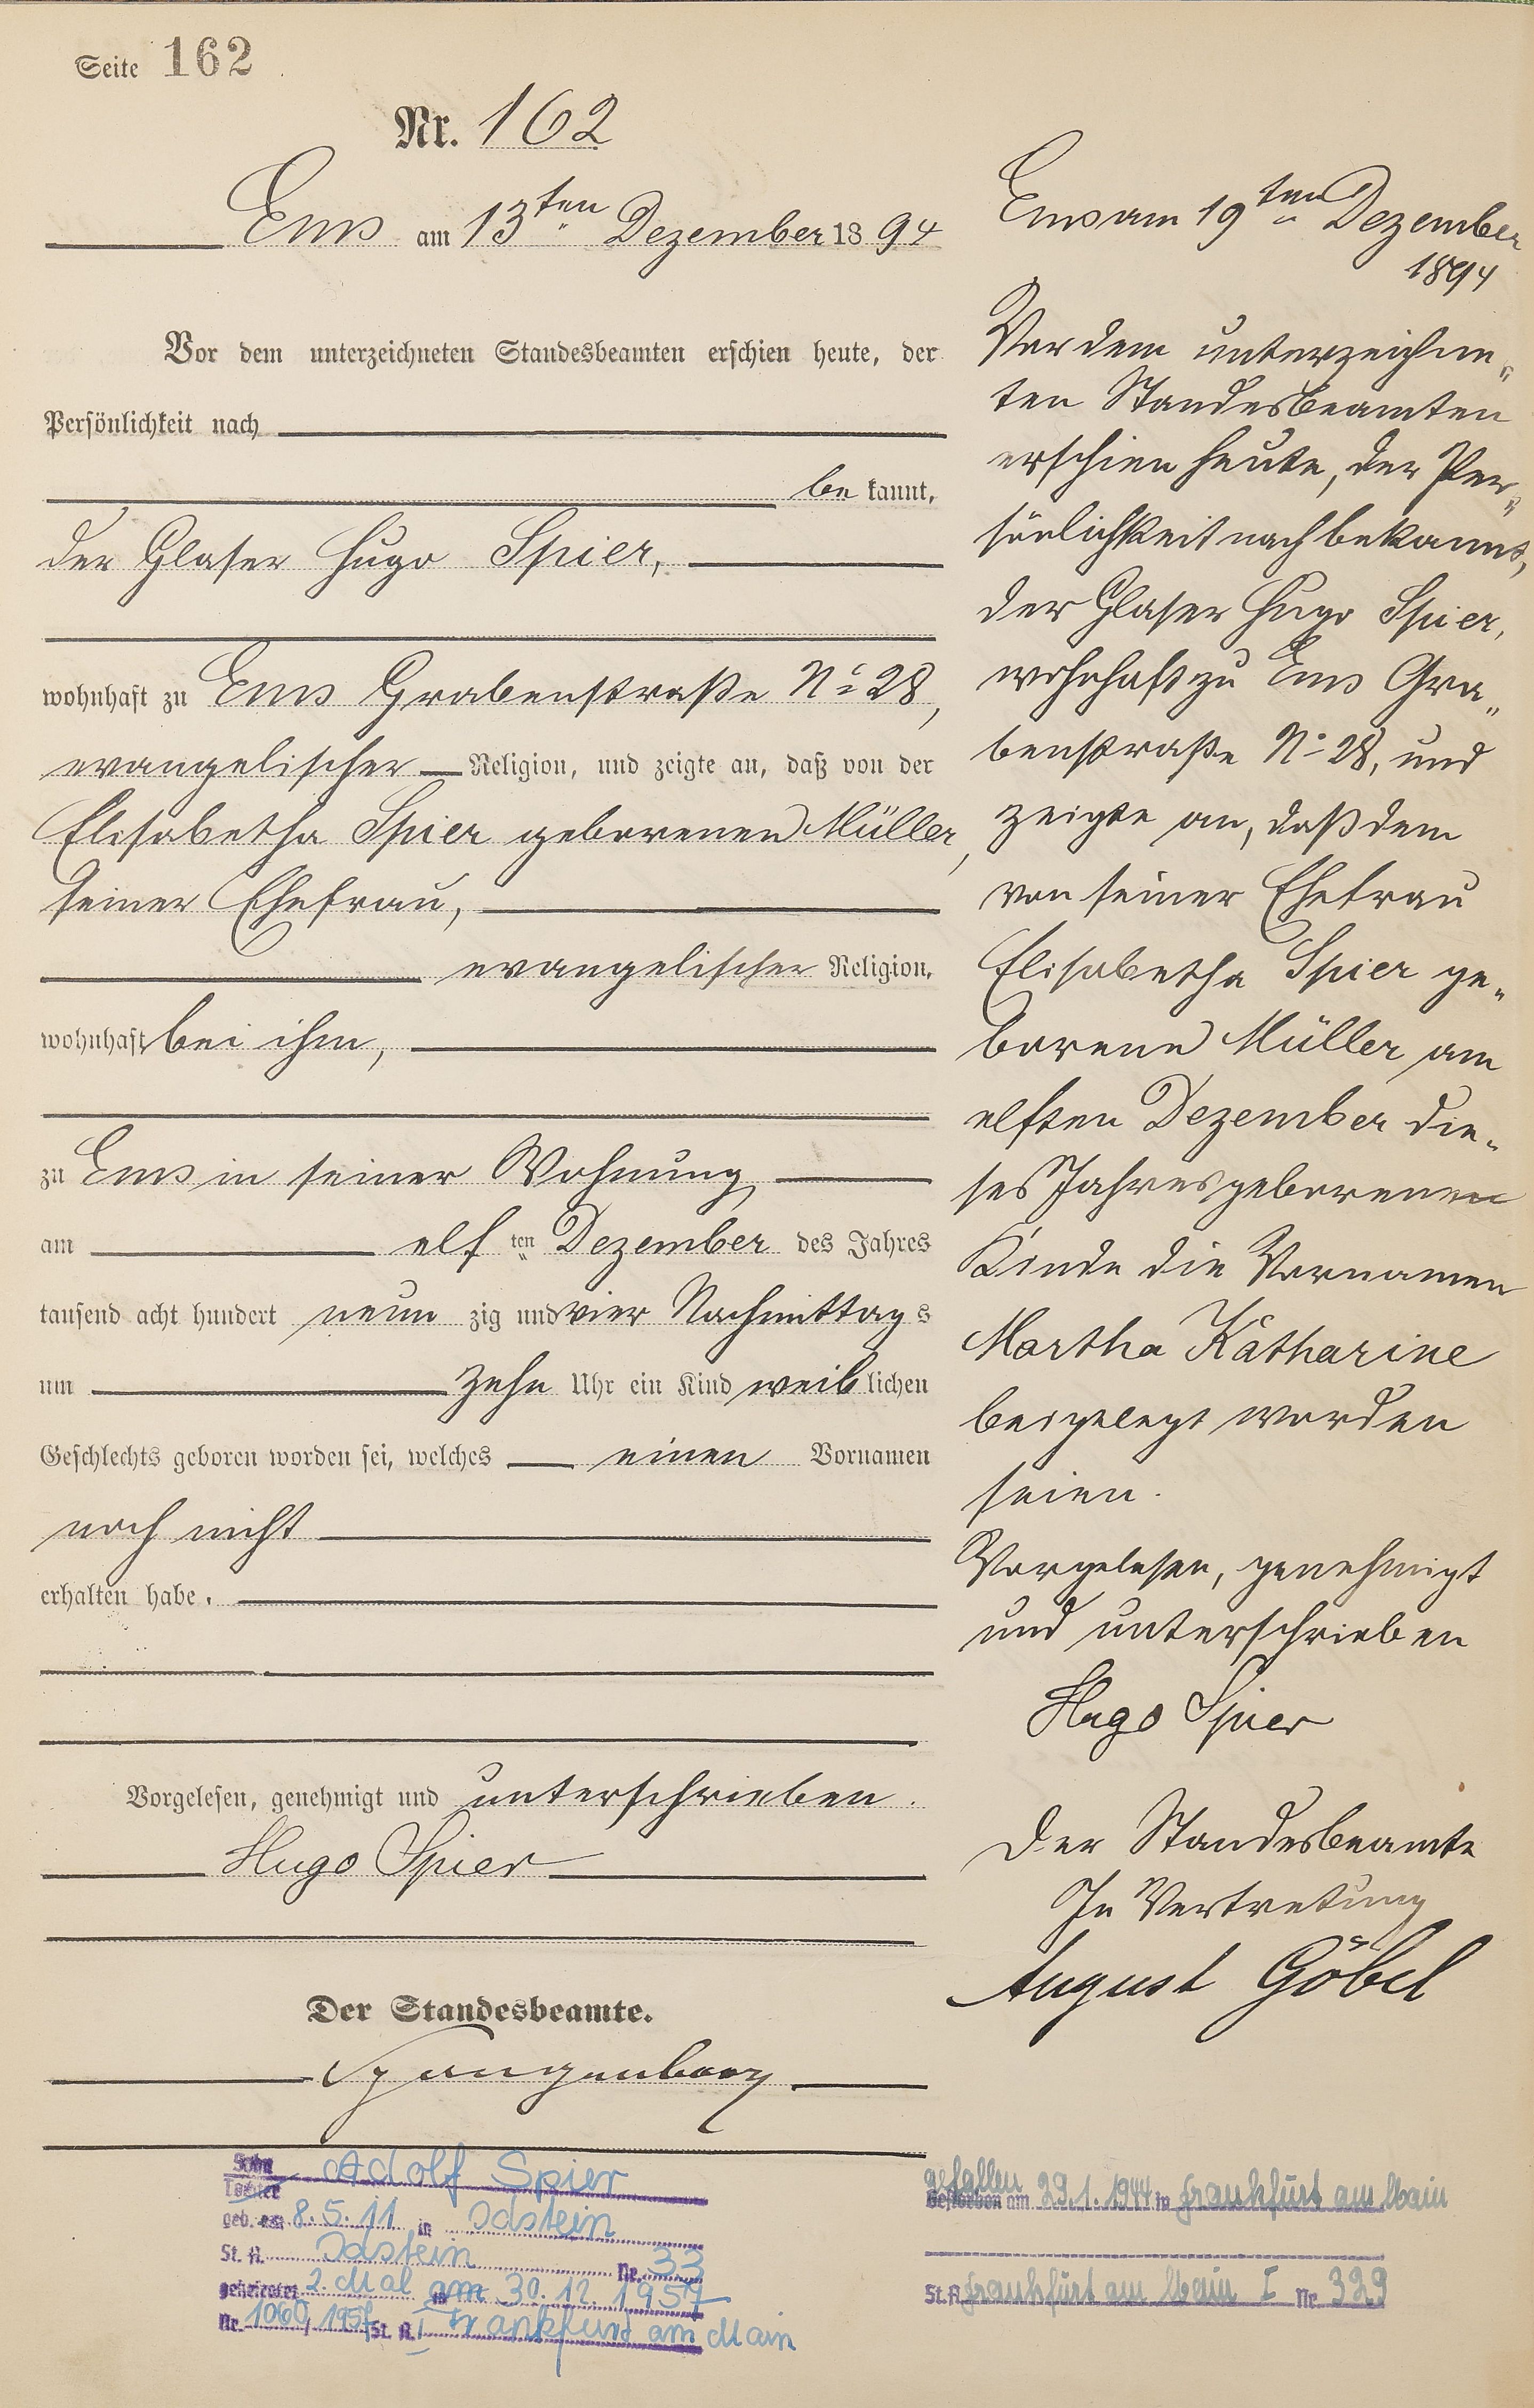 Seite 162
Nr. 162
Ems am 13ten Dezember 1894
Vor dem unterzeichneten Standesbeamten erschien heute, der
Persönlichkeit nach
be kannt,
der Glaser Hugo Spier,
wohnhaft zu Ems Grabenstraße No 28,
evangelischer Religion, und zeigte an, daß von der
Elisabetha Spier geborenen Müller,
seiner Ehefrau,
evangelischer Religion,
wohnhaft bei ihm,
zu Ems in seiner Wohnung,
am elf ten Dezember des Jahres
tausend acht hundert neun zig und vier Nachmittag s
um zehn Uhr ein Kind weib lichen
Geschlechts geboren worden sei, welches einen Vornamen
noch nicht
erhalten habe.
Vorgelesen, genehmigt und unterschrieben.
Hugo Spier
Der Standesbeamte.
Spangenberg
Ems am 19ten Dezember
1894
Vor dem unterzeichne„
ten Standesbeamten
erschien heute, der Per„
sönlichkeit nach bekannt,
der Glaser Hugo Spier,
wohnhaft zu Ems Gra„
benstraße No 28, und
zeigte an, daß dem
von seiner Ehefrau
Elisabetha Spier ge„
borene Müller am
elften Dezember die„
ses Jahres geborenen
Kinde die Vornamen
Martha Katharine
beigelegt worden
seien.
Vorgelesen, genehmigt
und unterschrieben
Hugo Spier
Der Standesbeamte
In Vertretung
August Göbel
Sohn Adolf Spier
Tochter
geb. am 8.5.11 in Idstein
St. A. Idstein Nr. 33
geheiratet 2. Mal am 30.12.1957
Nr. 1060/1957 St. A. I Frankfurt am Main
gefallen
Gestorben am 29.1.1944 in Frankfurt am Main
St. A. Frankfurt am Main I Nr. 329